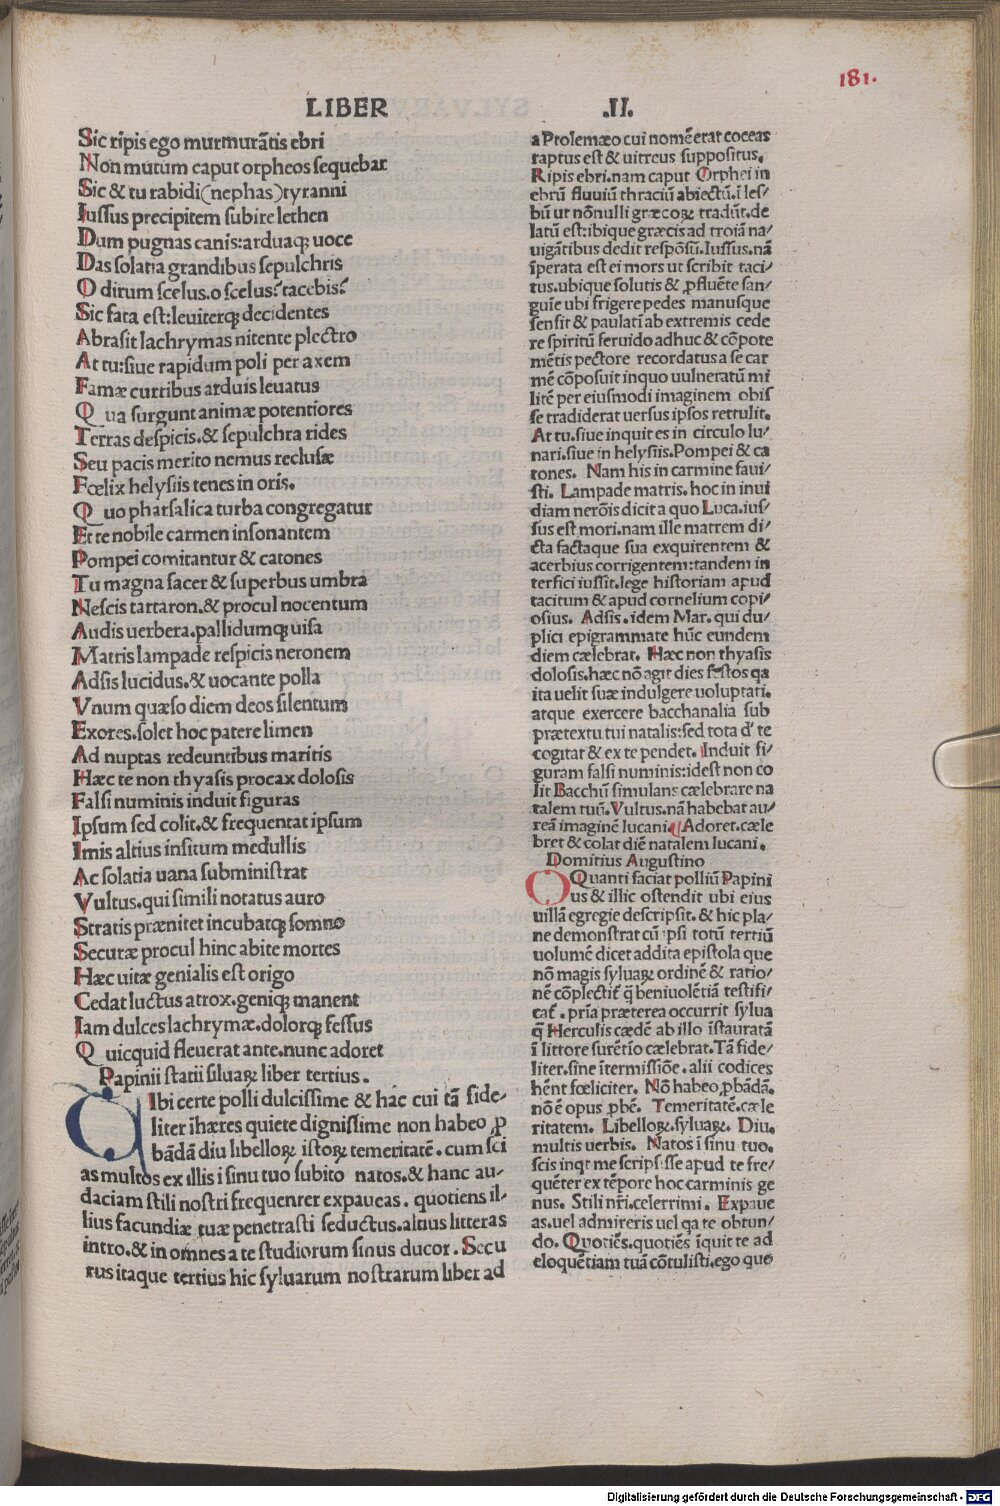 181.
LIBER .II.
Sic ripis ego murmurãtis ebri
Non mutum caput orpheos sequebar
Sic & tu rabidi(nephas)tyranni
Iussus precipitem subire lethen
Dum pugnas canis:arduaqꝫ uoce
Das solatia grandibus sepulchris
O dirum scelus.o scelus? tacebis?
Sic fata est:leuiterqꝫ decidentes
Abrasit lachrymas nitente plectro
At tu:siue rapidum poli per axem
Famæ curribus arduis leuatus
Qua surgunt animæ potentiores
Terras despicis.& sepulchra rides
Seu pacis merito nemus reclusæ
Fœlix helysiis tenes in oris.
Quo pharsalica turba congregatur
Et te nobile carmen insonantem
Pompei comitantur & catones
Tu magna sacer & superbus umbra
Nescis tartaron.& procul nocentum
Audis uerbera.pallidumqꝫ uisa
Matris lampade respicis neronem
Adsis lucidus.& uocante polla
Vnum quæso diem deos silentum
Exores.solet hoc patere limen
Ad nuptas redeuntibus maritis
Hæc te non thyasis procax dolosis
Falsi numinis induit figuras
Ipsum sed colit.& frequentat ipsum
Imis altius insitum medullis
Ac solatia uana subministrat
Vultus.qui simili notatus auro
Stratis prænitet incubatqꝫ somno
Securæ procul hinc abite mortes
Hæc uitæ genialis est origo
Cedat luctus atrox.geniqꝫ manent
Iam dulces lachrymæ.dolorqꝫ fessus
Quicquid fleuerat ante.nunc adoret
Papinii statii siluaꝝ liber tertius.
Ibi certe polli dulcissime & hac cui tã fide/
liter ĩhæres quiete dignissime non habeo ꝓ
bãdã diu libelloꝝ istoꝝ temeritatẽ.cum sci
as multos ex illis i sinu tuo subito natos.& hanc au/
daciam stili nostri frequenter expaueas. quotiens il/
lius facundiæ tuæ penetrasti seductus.altius litteras
intro.& in omnes a te studiorum sinus ducor. Secu
rus itaque tertius hic syluarum nostrarum liber ad
a Ptolemæo cui nomẽ erat coceas
raptus est & uitreus suppositus.
Ripis ebri.nam caput Orphei in
ebrũ fluuiũ thraciũ abiectũ.ĩ les/
bũ ut nõnulli græcoꝝ tradũt.de
latũ est:ibique græcis ad troiã na/
uigãtibus dedit respõsũ.Iussus.nã
ĩperata est ei mors ut scribit taci/
tus.ubique solutis & ꝓfluẽte san/
guĩe ubi frigere pedes manusque
sensit & paulatĩ ab extremis cede
re spiritũ feruido adhuc & cõpote
mẽtis pectore recordatus a se car
mẽ cõposuit inquo uulneratũ mi
litẽ per eiusmodi imaginem obis
se tradiderat uersus ipsos rettulit.
At tu.siue inquit es in circulo lu/
nari.siue in helysiis.Pompei & ca
tones. Nam his in carmine faui/
sti. Lampade matris.hoc in inui
diam nerõis dicit a quo Luca.ius/
sus est mori.nam ille matrem di/
cta factaque sua exquirentem &
acerbius corrigentem:tandem in
terfici iussit.lege historiam apud
tacitum & apud cornelium copi/
osius. Adsis.idem Mar. qui du/
plici epigrammate hũc eundem
diem cælebrat. Hæc non thyasis
dolosis.hæc nõ agit dies festos qa
ita uelit suæ indulgere uoluptati.
atque exercere bacchanalia sub
prætextu tui natalis:sed tota d' te
cogitat & ex te pendet. Induit fi/
guram falsi numinis:idest non co
lit Bacchũ simulans cælebrare na
talem tuũ. Vultus.nã habebat au/
reã imaginẽ lucani.¶Adoret.cæle
bret & colat diẽ natalem lucani.
Domitius Augustino
OQuanti faciat polliũ Papini
us & illic ostendit ubi eius
uillã egregie descripsit.& hic pla/
ne demonstrat cũ ipsi totũ tertiũ
uolumẽ dicet addita epistola que
nõ magis syluaꝝ ordinẽ & ratio/
nẽ cõplectit̃ q̃ beniuolẽtiã testifi/
cat̃. prĩa præterea occurrit sylua
q̃ Herculis cædẽ ab illo ĩstauratã
ĩ littore surẽtĩo cælebrat.Tã fide/
liter.sĩne ĩtermissiõe.alii codices
hẽnt fœliciter. Nõ habeo ꝓbãdã.
nõ ẽ opus ꝓbẽ. Temeritatẽ.cæle
ritatem. Libelloꝝ.syluaꝝ. Diu.
multis uerbis. Natos ĩ sinu tuo.
scis inqt me scripsisse apud te fre/
quẽter ex tẽpore hoc carminis ge
nus. Stili nr̃i.celerrimi. Expaue
as.uel admireris uel qa te obtun/
do. Quotiẽs.quotiẽs ĩquit te ad
eloquẽtiam tuã cõtulisti.ego quo
Digitalisierung gefördert durch die Deutsche Forschungsgemeinschaft - DFG